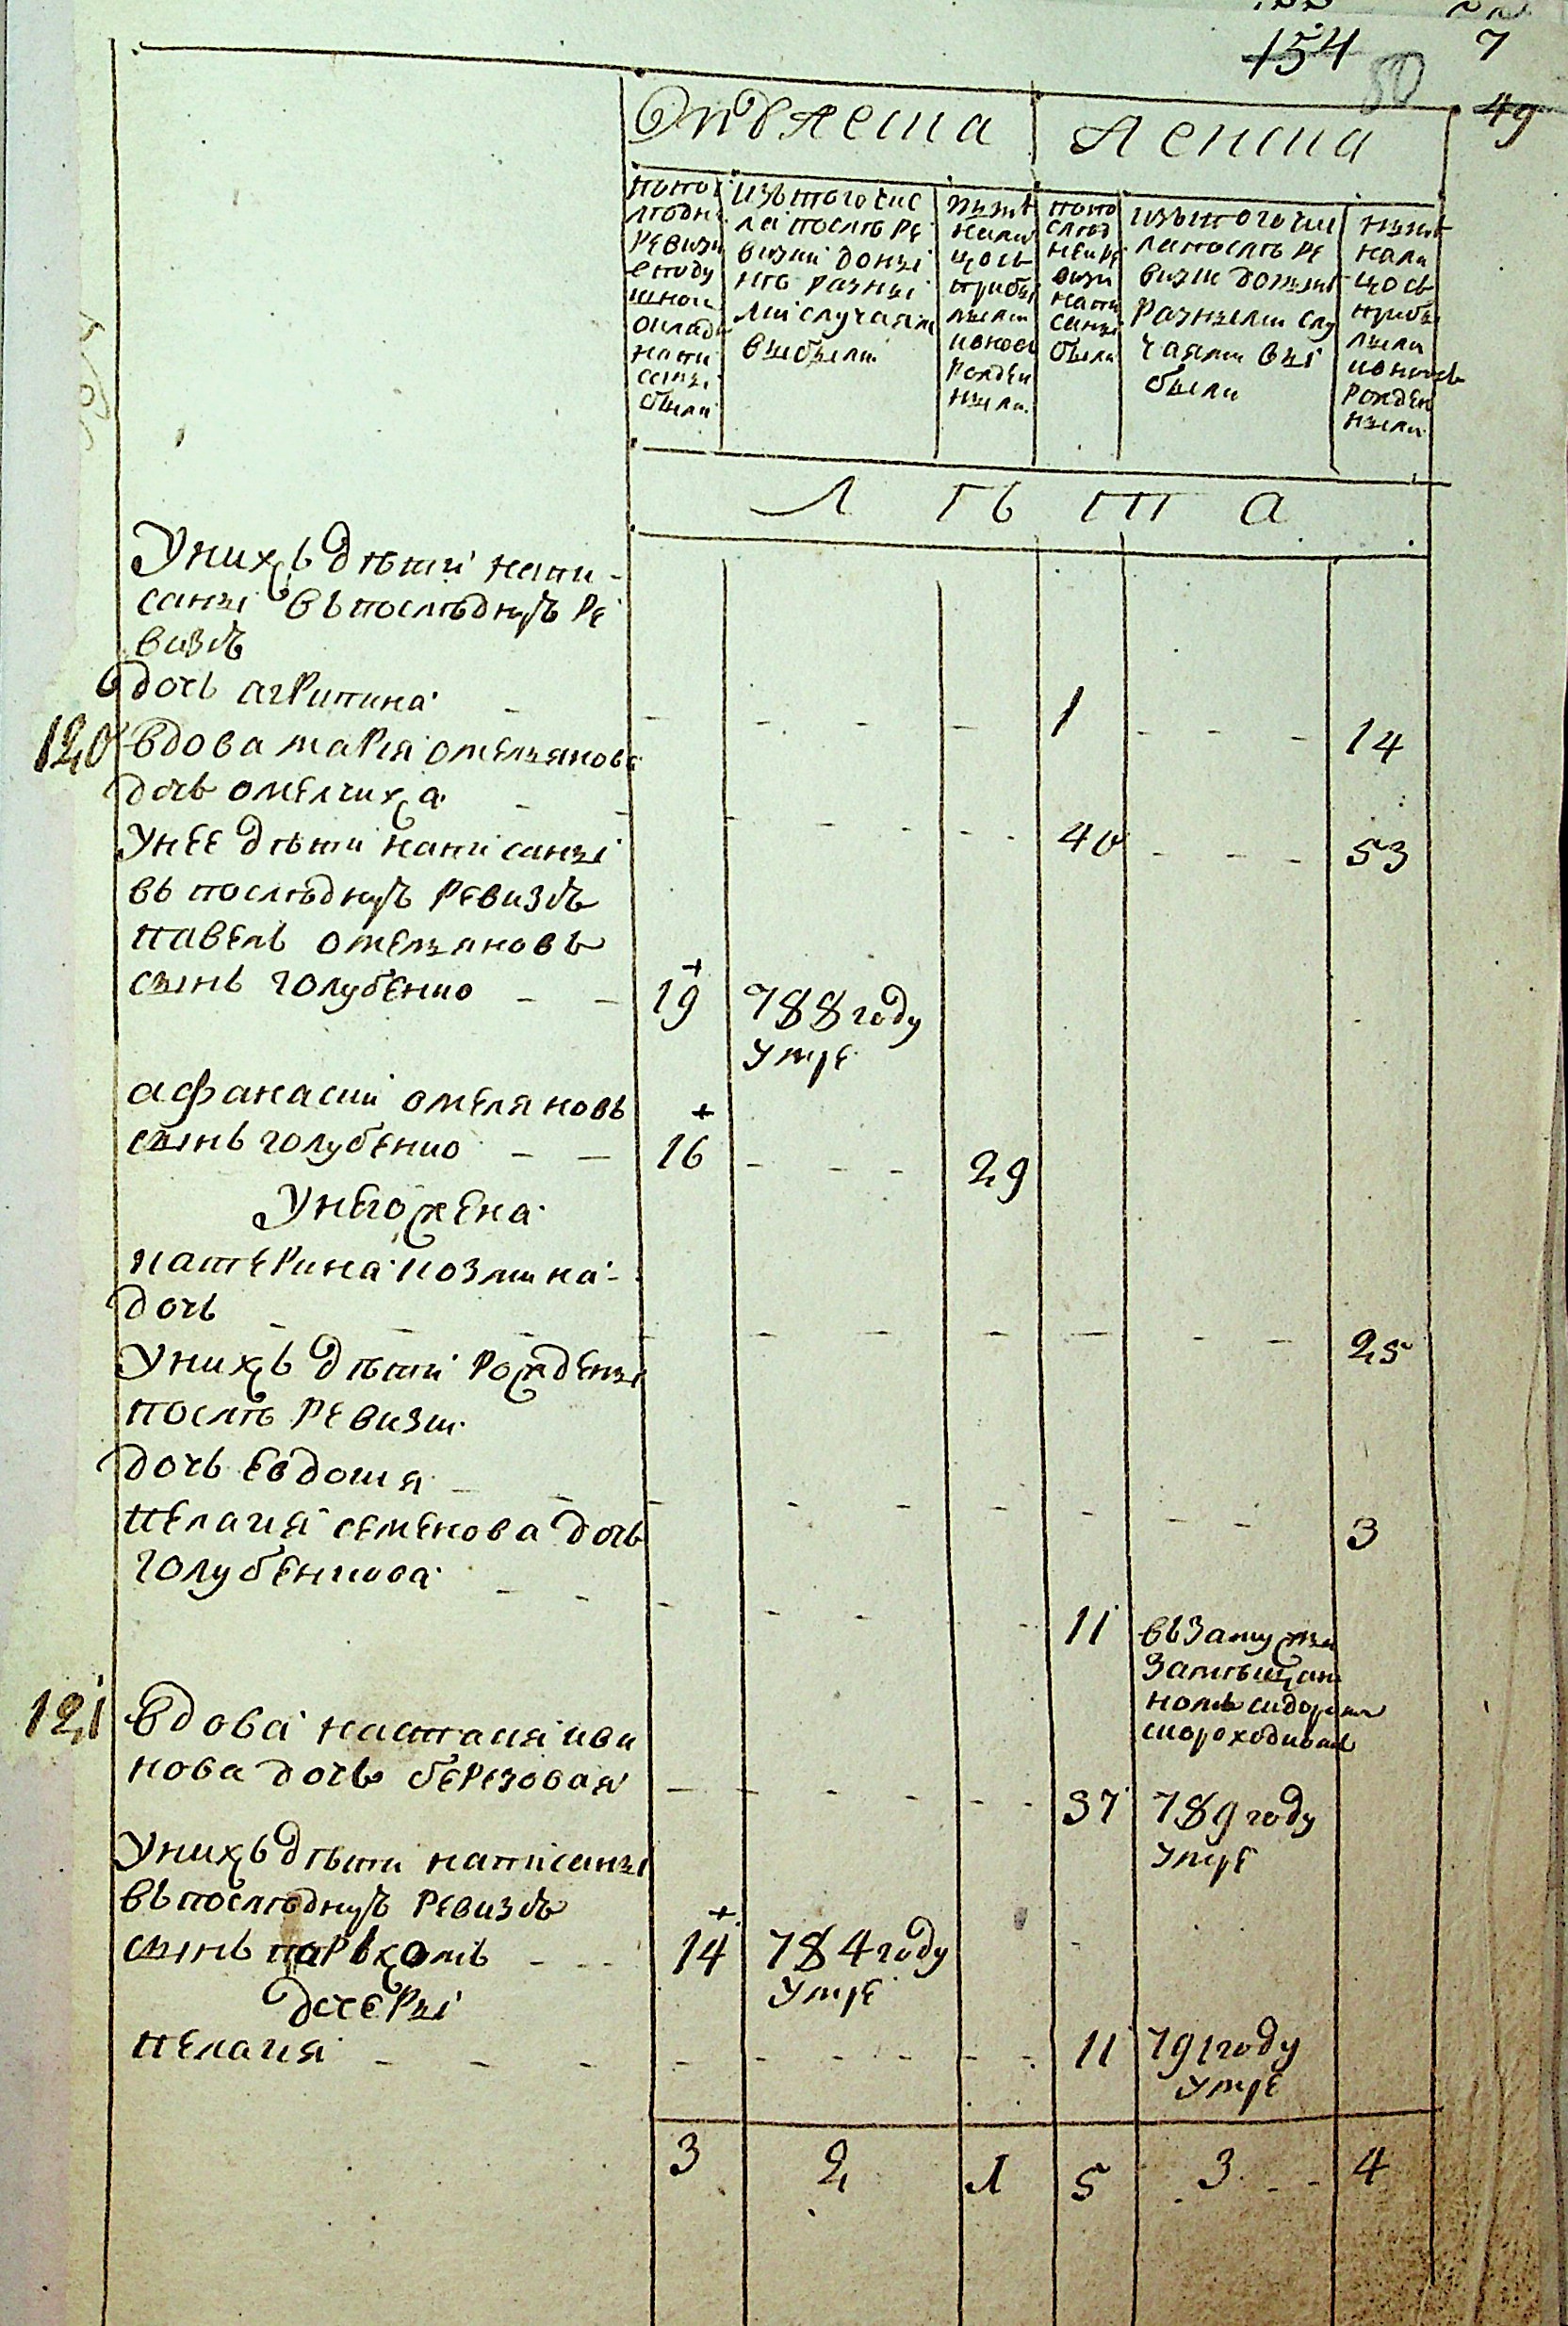 154
7
50
49
Отвлеста ленста
попо
следне
ревизи
еподу
шном
окладе
напи
саны
были
изътогочис
ла после ре
визии доны
не разны
ми случаями
выбыли
ныне
нали
цось
прибы
лыми
иновь
рожден
ными
попо
след
ней ре
визи
напи
саны
были
изътогочис
ла после ре
визи доныне
разными слу
чаями вы
были
ныне
нали
цось
прибы
лыми
иновь
рожден
ными
Л Ѣ т а
Унихъ дѣти напи-
саны въ последнуъ ре
визiъ
дочь агрипина 1 14
120 вдова мария омельянова
дочь омелчиха 40 53
Унее дѣти написаны
въ последнуъ ревизiъ
павелъ омельяновъ
сынъ голубенко 19 788 году
умре
афанасий омеляновъ
сынъ голубенко 16 29
Унего жена
катерина козмина
дочь 25
Унихъ дѣти рождены
послѣ ревизии
дочь Евдокия 3
пелагия семенова дочь
голубенкова 11 въ замужъ
замѣщан
номъ сидором
скороходкомъ
121 вдова настасия ива
нова дочь березовая 37 789 году
умре
Унихъ дѣти написаны
въ последнуъ ревизiъ
сынъ пархомъ 14 784 году
умре
дочеры
пелагия 11 791 году
умре
3 2 1 5 3 4